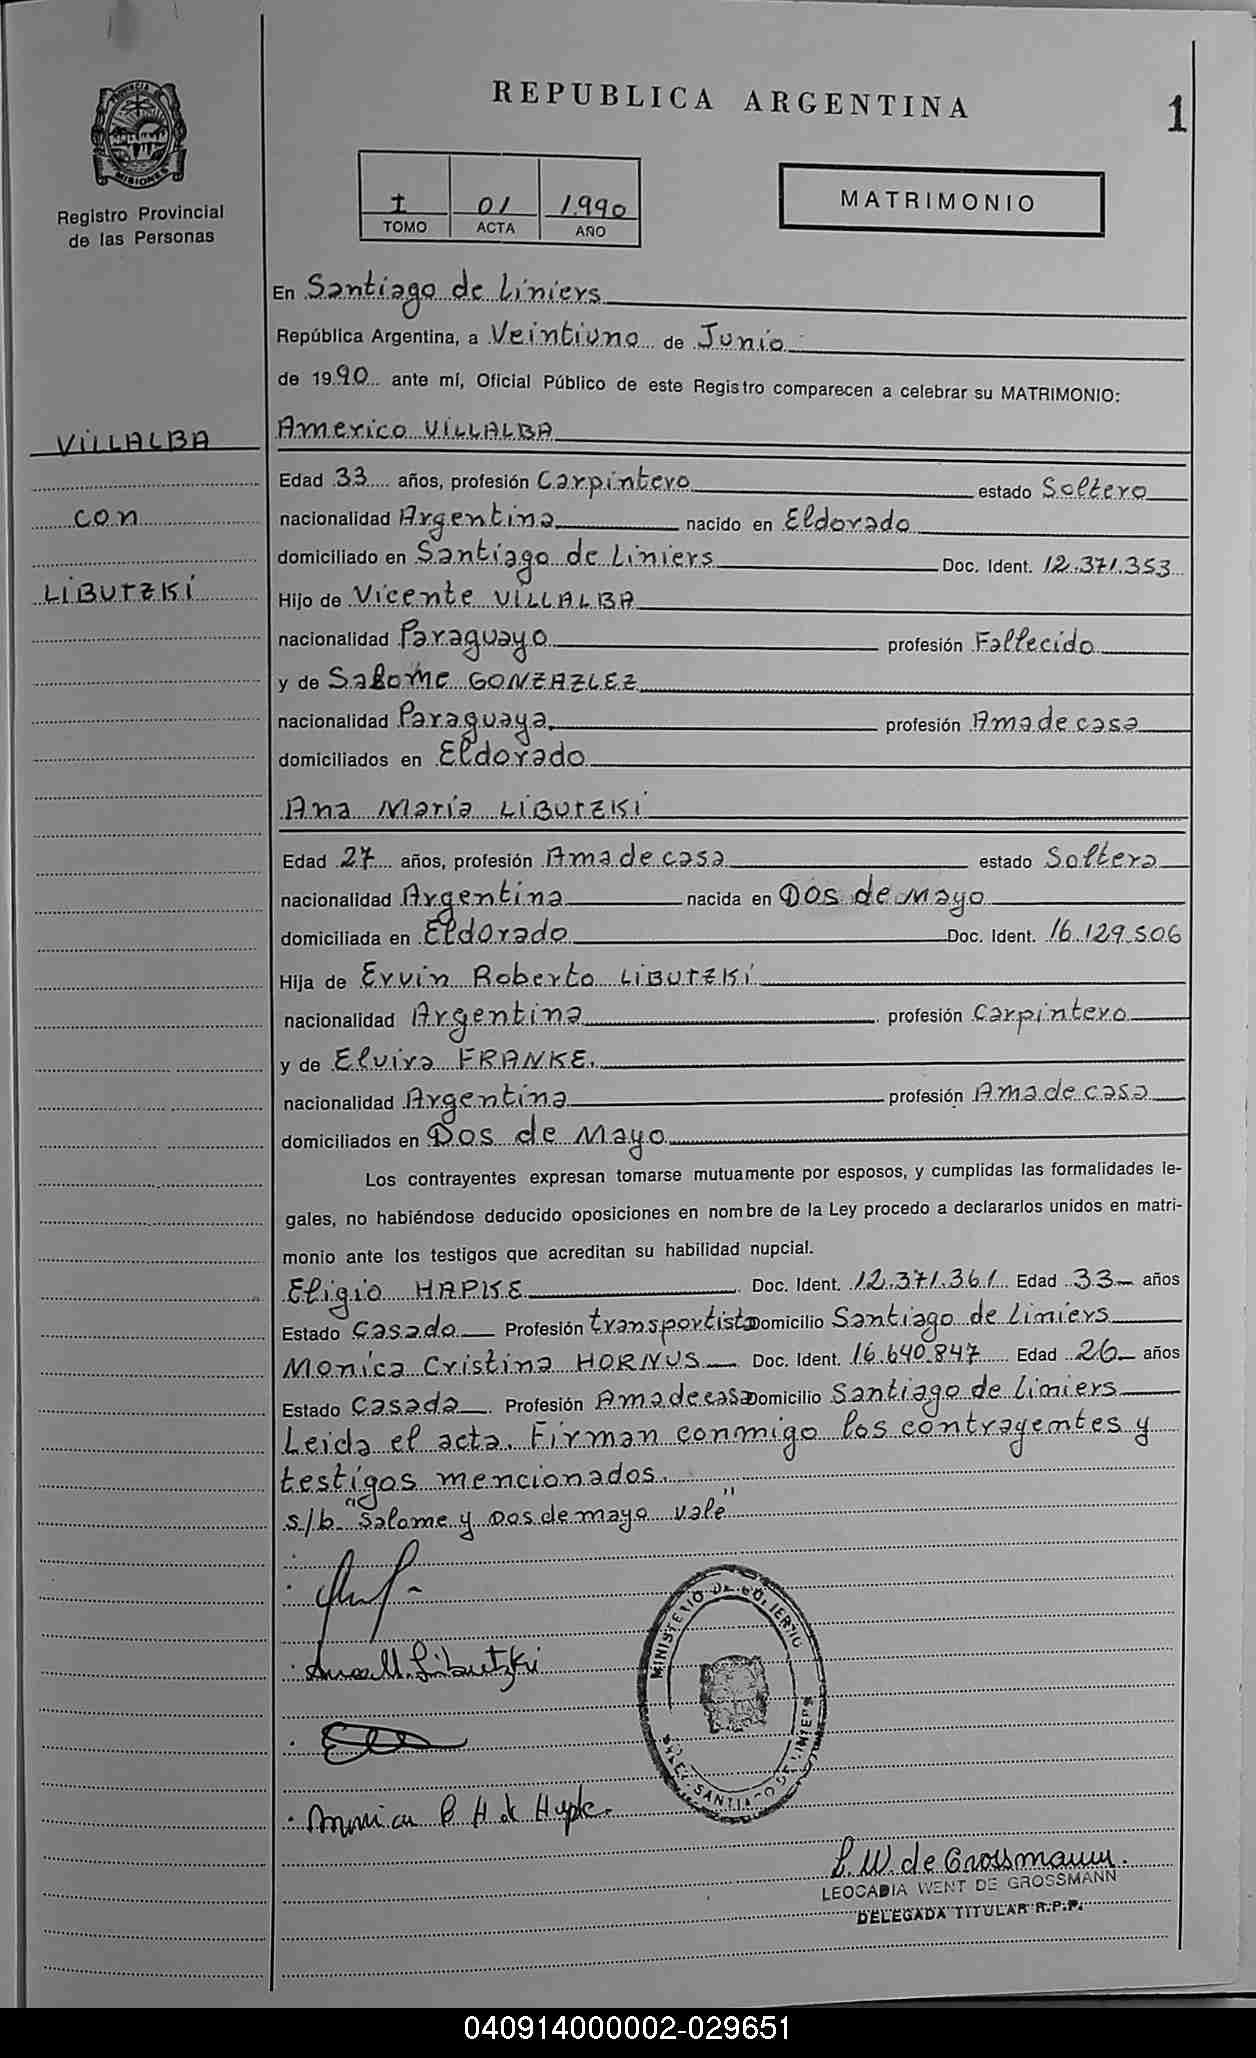 REPUBLICA ARGENTINA
1
PROVINCIA DE
MISIONES
Registro Provincial
de las Personas
I 01 1.990
TOMO ACTA AÑO
MATRIMONIO
En Santiago de Liniers
República Argentina, a Veintiuno de Junio
de 1990 ante mí, Oficial Público de este Registro comparecen a celebrar su MATRIMONIO:
VILLALBA
con
LIBUTZKI
Americo VILLALBA
Edad 33 años, profesión Carpintero estado Soltero
nacionalidad Argentina nacido en Eldorado
domiciliado en Santiago de Liniers Doc. Ident. 12.371.353
Hijo de Vicente VILLALBA
nacionalidad Paraguayo profesión Fallecido
y de Salome GONZAZLEZ
nacionalidad Paraguaya. profesión Ama de casa
domiciliados en Eldorado
Ana María LIBUTZKI
Edad 27 años, profesión Ama de casa estado Soltera
nacionalidad Argentina nacida en Dos de Mayo
domiciliada en Eldorado Doc. Ident. 16.129.506
Hija de Ervin Roberto LIBUTZKI
nacionalidad Argentina profesión Carpintero
y de Elvira FRANKE.
nacionalidad Argentina profesión Ama de casa
domiciliados en Dos de Mayo
Los contrayentes expresan tomarse mutuamente por esposos, y cumplidas las formalidades le-
gales, no habiéndose deducido oposiciones en nombre de la Ley procedo a declararlos unidos en matri-
monio ante los testigos que acreditan su habilidad nupcial.
Eligio HAPKE Doc. Ident. 12.371.361 Edad 33 años
Estado Casado Profesión transportista Domicilio Santiago de Liniers
Monica Cristina HORNUS Doc. Ident. 16.640.847 Edad 26 años
Estado Casada Profesión Ama de casa Domicilio Santiago de Liniers
Leida el acta. Firman conmigo los contrayentes y
testigos mencionados.
s/b "Salome y Dos de mayo vale"
Ana M. Libutzki
Monica C H de Hapke.
MINISTERIO DE GOBIERNO
SANTIAGO DE LINIERS
L. W. de Grossmann.
LEOCADIA WENT DE GROSSMANN
DELEGADA TITULAR R.P.P.
040914000002-029651